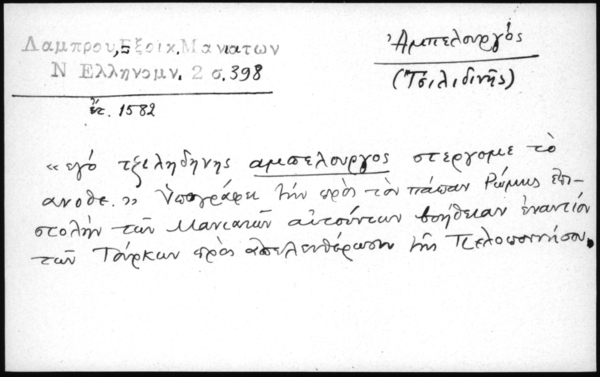 Λαμπρου, Εξοικ. Μανιατων
Ν Ελληνομν. 2 σ.398
ἔτ. 1582
Ἀμπελουργός
(Τσιλιδινῆς)
«εγό τζεληδηνης αμπελουργος στεργομε το
ανοθε.» Ὑπογράφει τὴν πρὸς τὸν πάπαν Ρώμης ἐπι-
στολὴν τῶν Μανιατῶν αἰτούντων βοήθειαν ἐναντίον
τῶν Τούρκων πρὸς ἀπελευθέρωσιν τῆς Πελοποννήσου.